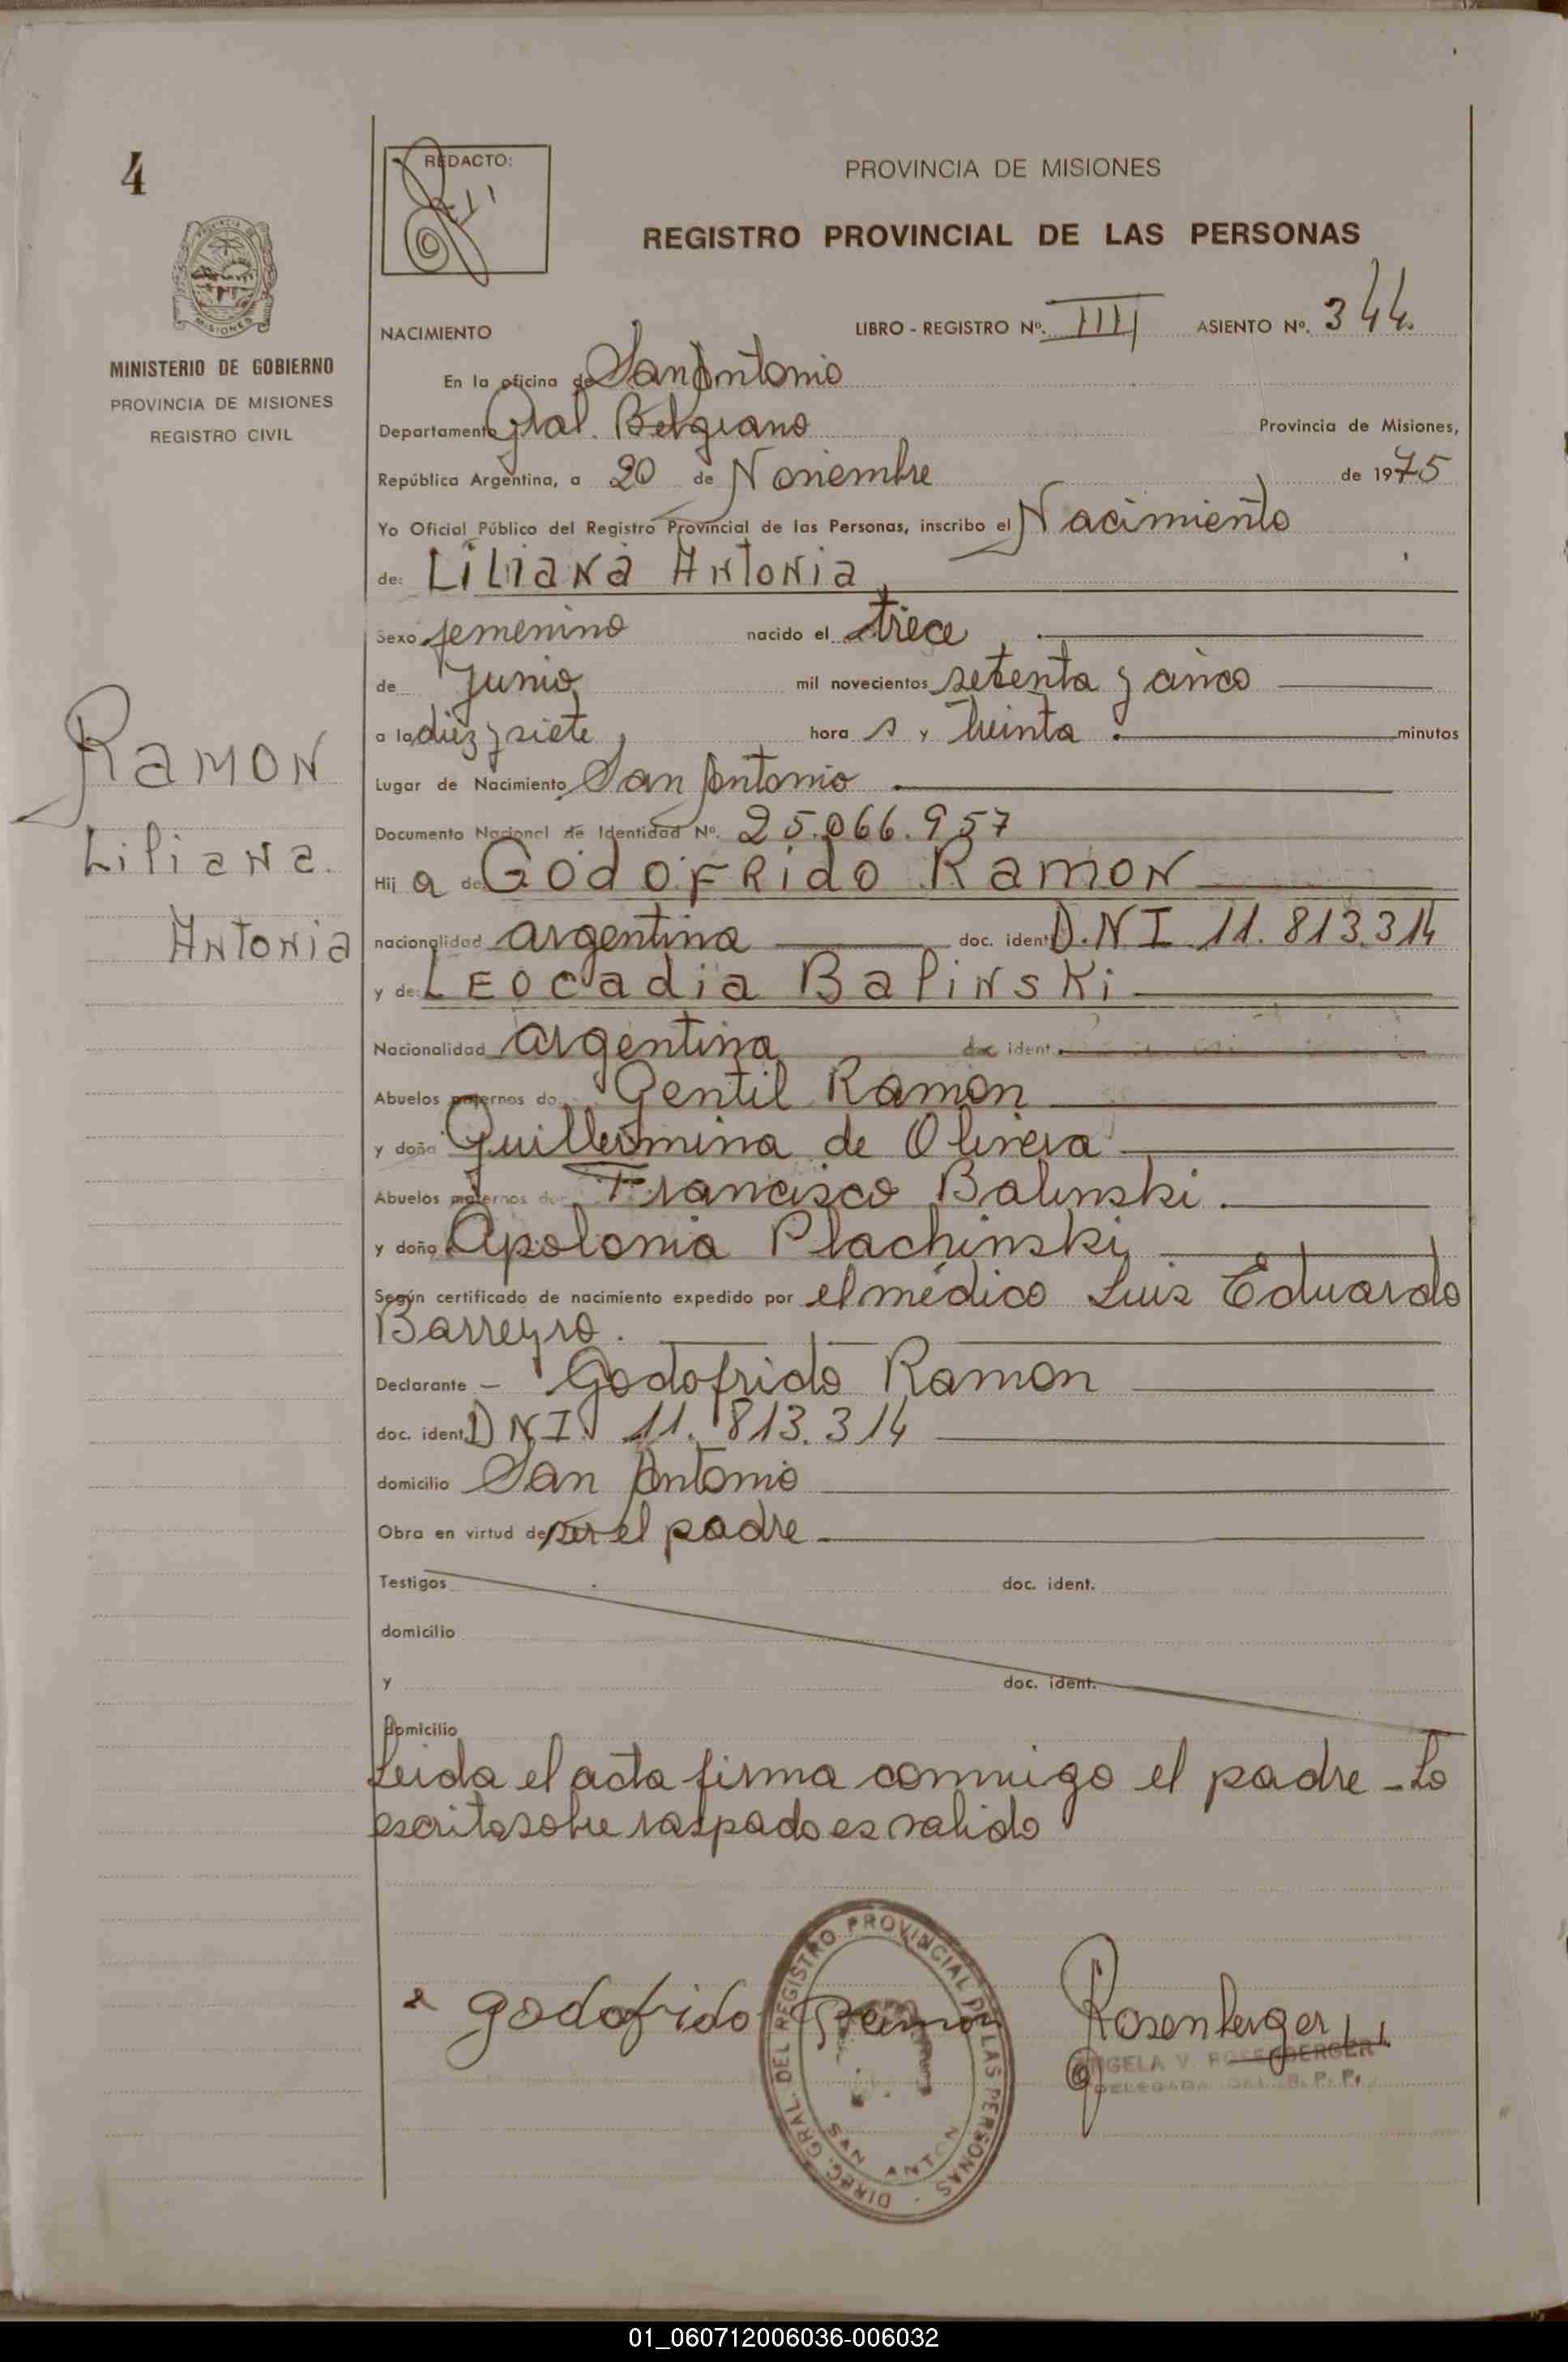 4
MINISTERIO DE GOBIERNO
PROVINCIA DE MISIONES
REGISTRO CIVIL
Ramon
Liliana
Antonia
REDACTO:
PROVINCIA DE MISIONES
REGISTRO PROVINCIAL DE LAS PERSONAS
NACIMIENTO LIBRO - REGISTRO Nº. IIII ASIENTO Nº. 344.
En la oficina de San Antonio
Departamento Gral. Belgrano Provincia de Misiones,
República Argentina, a 20 de Noviembre de 1975
Yo Oficial Público del Registro Provincial de las Personas, inscribo el Nacimiento
de: Liliana Antonia
Sexo femenino nacido el trece
de Junio mil novecientos setenta y cinco
a la diez y siete hora s y treinta. minutos
Lugar de Nacimiento San Antonio
Documento Nacional de Identidad Nº. 25.066.957
Hij a de Godofrido Ramon
nacionalidad argentina doc. ident. D.N.I. 11.813.314
y de: Leocadia Balinski
Nacionalidad argentina doc ident.
Abuelos paternos do Gentil Ramon
y doña Guillermina de Olivera
Abuelos maternos do Francisco Balinski.
y doña Apolonia Plachinski
Según certificado de nacimiento expedido por el médico Luis Eduardo
Barreyro.
Declarante - Godofrido Ramon
doc. ident. D N I. 11.813.314
domicilio San Antonio
Obra en virtud de ser el padre
Testigos doc. ident.
domicilio
y doc. ident.
domicilio
Leida el acta firma conmigo el padre - Lo
escrito sobre raspado es valido
Godofrido Ramon Rosenberger
DIREC. GRAL. DEL REGISTRO PROVINCIAL DE LAS PERSONAS -
SAN ANTON
ANGELA V. ROSENBERGER
DELEGADA R. P. P.
01_060712006036-006032